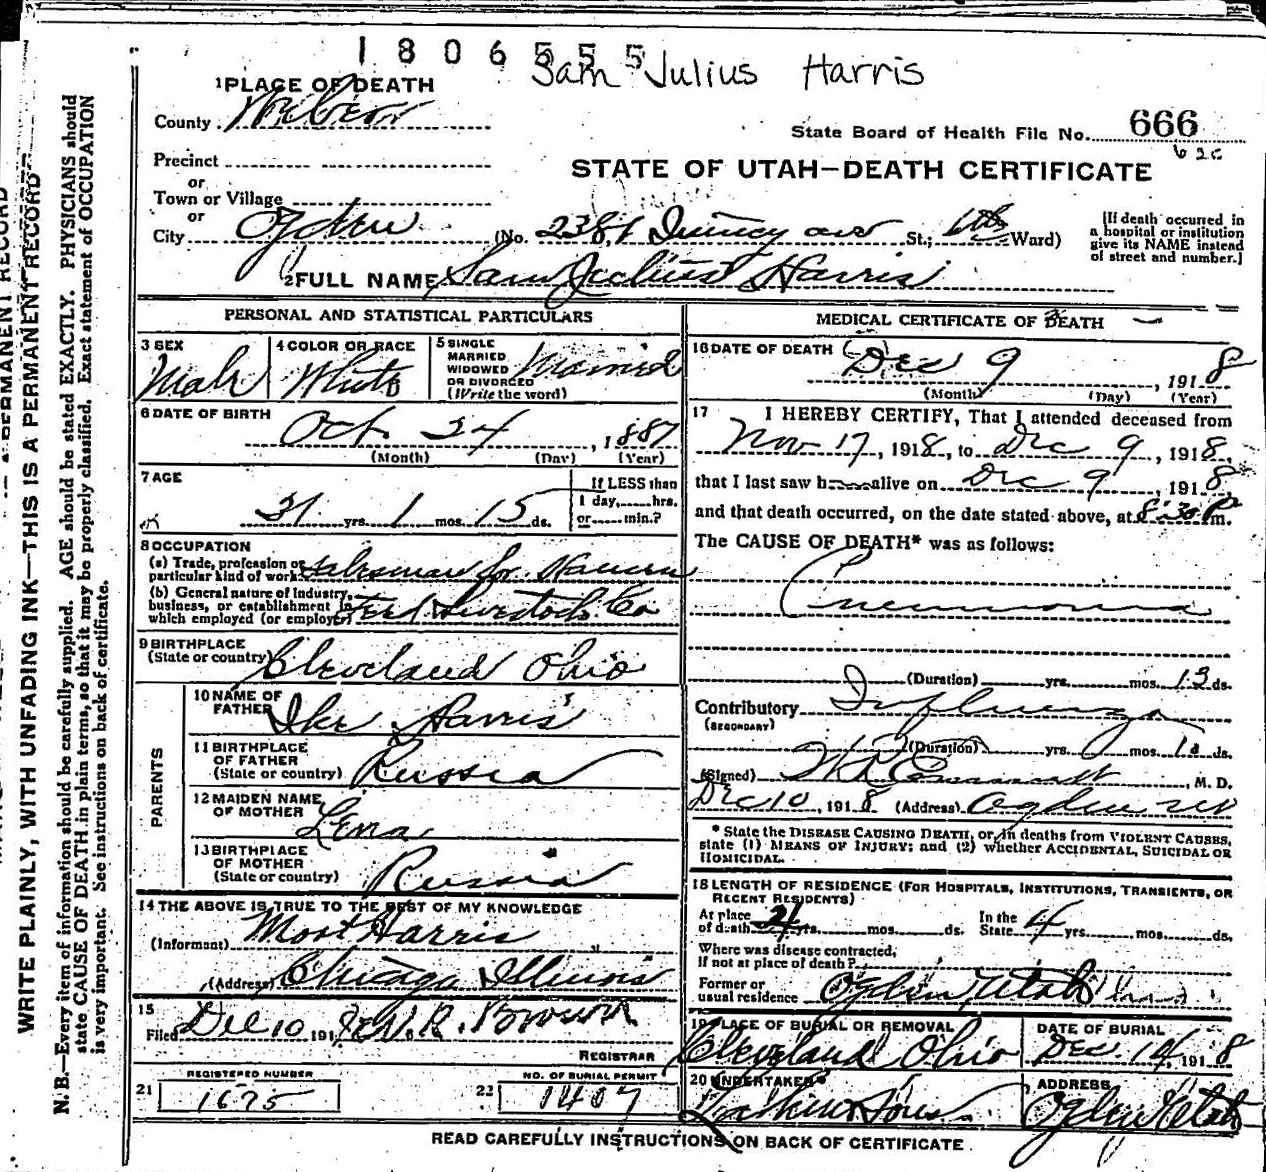 1806555
Sam Julius Harris
1 PLACE OF DEATH
County Weber
State Board of Health File No. 666
Precinct
or
Town or Village
or
STATE OF UTAH—DEATH CERTIFICATE
City Ogden (No. 2381 Quincy ave St.; 6th Ward)
[If death occurred in a hospital or institution give its NAME instead of street and number.]
2 FULL NAME Sam Julius Harris
PERSONAL AND STATISTICAL PARTICULARS
3 SEX Male
4 COLOR OR RACE White
5 SINGLE MARRIED WIDOWED OR DIVORCED (Write the word) Married
6 DATE OF BIRTH
Oct 24, 1887
(Month) (Day) (Year)
7 AGE
31 yrs. 1 mos. 15 ds.
If LESS than 1 day,......hrs. or......min.?
8 OCCUPATION
(a) Trade, profession or particular kind of work Salesman for
(b) General nature of Industry, business, or establishment in which employed (or employer) Livestock Co
9 BIRTHPLACE
(State or country) Cleveland Ohio
PARENTS
10 NAME OF FATHER Ike Harris
11 BIRTHPLACE OF FATHER (State or country) Russia
12 MAIDEN NAME OF MOTHER Lena
13 BIRTHPLACE OF MOTHER (State or country) Russia
14 THE ABOVE IS TRUE TO THE BEST OF MY KNOWLEDGE
(Informant) Mort Harris
(Address) Chicago Illinois
15
Filed Dec 10 1918 W. R. Brown
REGISTRAR
21 REGISTERED NUMBER 1675
22 NO. OF BURIAL PERMIT 1407
MEDICAL CERTIFICATE OF DEATH
16 DATE OF DEATH
Dec 9, 1918
(Month) (Day) (Year)
17 I HEREBY CERTIFY, That I attended deceased from
Nov 17, 1918, to Dec 9, 1918,
that I last saw h alive on Dec 9, 1918,
and that death occurred, on the date stated above, at 8:30 P.m.
The CAUSE OF DEATH* was as follows:
Pneumonia
(Duration) yrs. mos. 13 ds.
Contributory Influenza
(SECONDARY)
(Duration) yrs. mos. 10 ds.
(Signed) M. D.
Dec 10, 1918 (Address) Ogden
* State the DISEASE CAUSING DEATH, or, in deaths from VIOLENT CAUSES, state (1) MEANS OF INJURY; and (2) whether ACCIDENTAL, SUICIDAL OR HOMICIDAL.
18 LENGTH OF RESIDENCE (FOR HOSPITALS, INSTITUTIONS, TRANSIENTS, OR RECENT RESIDENTS)
At place of death yrs. mos. ds. In the State 4 yrs. mos. ds.
Where was disease contracted, if not at place of death?
Former or usual residence Ogden, Utah
19 PLACE OF BURIAL OR REMOVAL Cleveland Ohio
DATE OF BURIAL Dec. 14, 1918
20 UNDERTAKER Larkin & Sons
ADDRESS Ogden Utah
READ CAREFULLY INSTRUCTIONS ON BACK OF CERTIFICATE
WRITE PLAINLY, WITH UNFADING INK—THIS IS A PERMANENT RECORD
N. B.—Every item of information should be carefully supplied. AGE should be stated EXACTLY. PHYSICIANS should
state CAUSE OF DEATH in plain terms, so that it may be properly classified. Exact statement of OCCUPATION
is very important. See instructions on back of certificate.